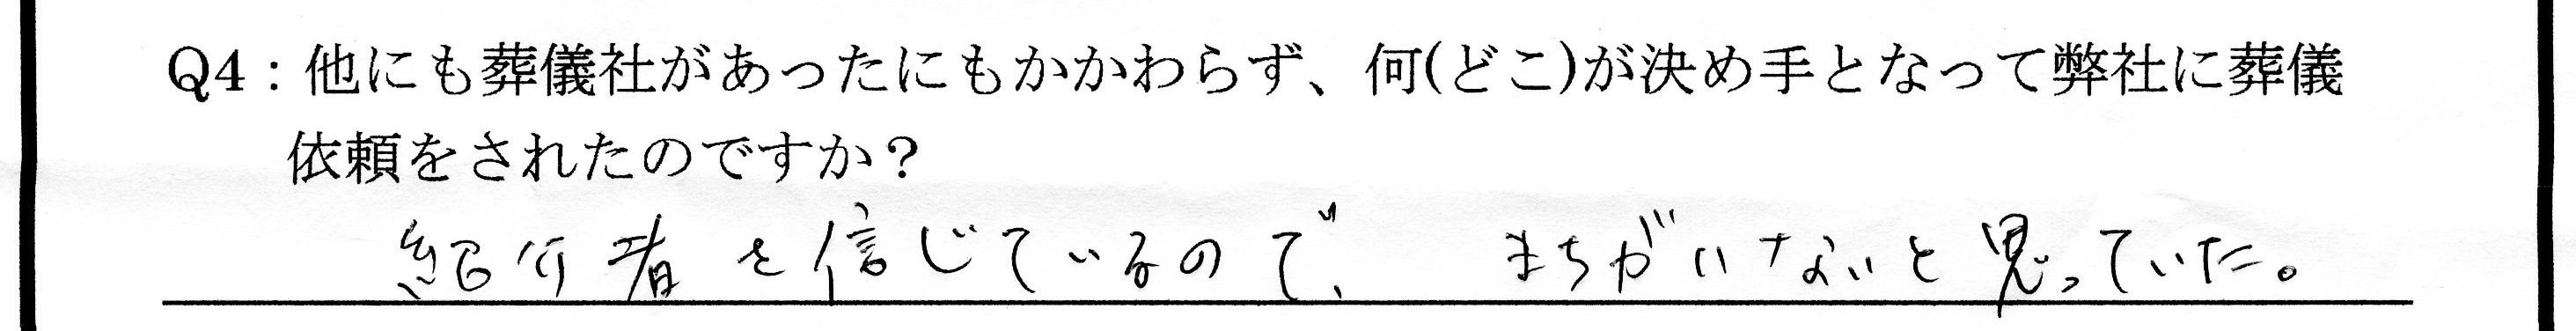 Q4：他にも葬儀社があったにもかかわらず、何(どこ)が決め手となって弊社に葬儀
依頼をされたのですか？
紹介者を信じているので、まちがいないと思っていた。